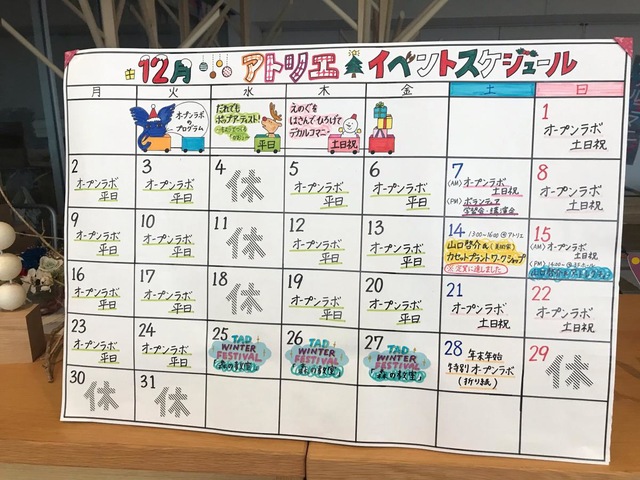 12月 アトリエ イベントスケジュール
月 火 水 木 金 土 日
オープンラボ
の
プログラム
だれでも
ポップアーティスト!
平日
えのぐを
はさんで ひろげて
デカルコマニー
土日祝
1
オープンラボ
土日祝
2
オープンラボ
平日
3
オープンラボ
平日
4
休
5
オープンラボ
平日
6
オープンラボ
平日
7
(AM) オープンラボ
土日祝
(PM) ボランティア
8
オープンラボ
土日祝
9
オープンラボ
平日
10
オープンラボ
平日
11
休
12
オープンラボ
平日
13
オープンラボ
平日
14 13:00~16:00 @アトリエ
山口啓介氏(美術家)
カセットプラントワークショップ
※定員に達しました
15
(AM) オープンラボ
土日祝
(PM) 14:00~
16
オープンラボ
平日
17
オープンラボ
平日
18
休
19
オープンラボ
平日
20
オープンラボ
平日
21
オープンラボ
土日祝
22
オープンラボ
土日祝
23
オープンラボ
平日
24
オープンラボ
平日
25
TAD
WINTER
FESTIVAL
森の教室
26
TAD
WINTER
FESTIVAL
森の教室
27
TAD
WINTER
FESTIVAL
森の教室
28 年末年始
特別オープンラボ
(折り紙)
29
休
30
休
31
休